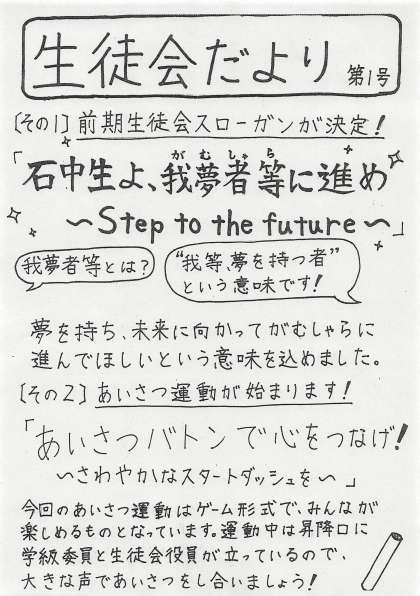 生徒会だより 第1号
[その1] 前期生徒会スローガンが決定!
がむしゃら
「石中生よ、我夢者等に進め
～Step to the future～」
我夢者等とは?
“我等、夢を持つ者”
という意味です!
夢を持ち、未来に向かってがむしゃらに
進んでほしいという意味を込めました。
[その2] あいさつ運動が始まります!
「あいさつバトンで心をつなげ!
～さわやかなスタートダッシュを～」
今回のあいさつ運動はゲーム形式で、みんなが
楽しめるものとなっています。運動中は昇降口に
学級委員と生徒会役員が立っているので、
大きな声であいさつをし合いましょう!